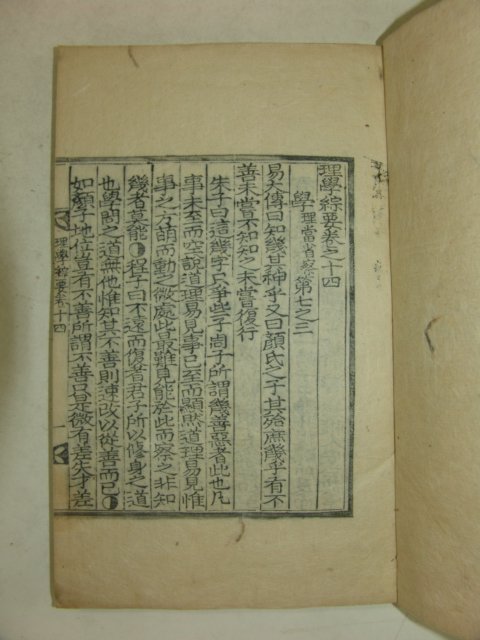 理學綜要卷之十四
學 理當省察 第七之三
易大傳曰知幾其神乎又曰顔氏之子其殆庶幾乎有不
善未嘗不知知之未嘗復行
朱子曰這幾字只爭些子周子所謂幾善惡者此也凡
事未至而空說道理易見事已至而顯然道理易見惟
事之方萌而動之微處此最難見能於此而察之非知
幾者莫能◐程子曰不遠而復者君子所以修身之道
也學問之道無他惟知其不善則速改以從善而已◐
如顔子地位豈有不善所謂不善只是微有差失才差
理學綜要卷十四
一